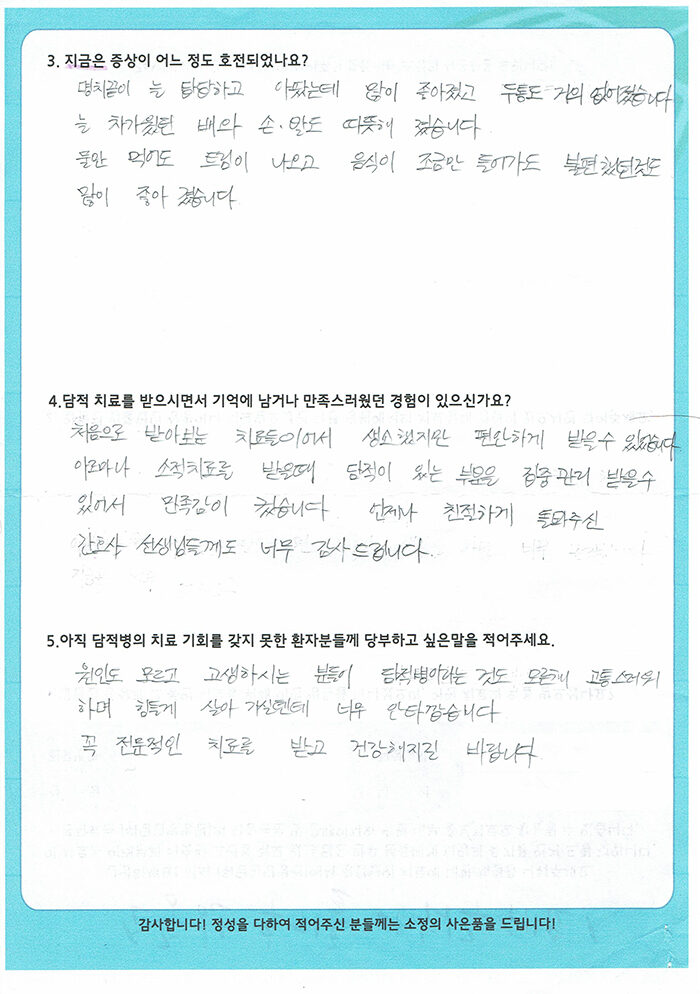 3. 지금은 증상이 어느 정도 호전되었나요?
명치끝이 늘 답답하고 아팠는데 많이 좋아졌고 두통도 거의 없어졌습니다
늘 차가웠던 배와 손·발도 따뜻해 졌습니다
물만 먹어도 트림이 나오고 음식이 조금만 들어가도 불편했던것도
많이 좋아 졌습니다
4.담적 치료를 받으시면서 기억에 남거나 만족스러웠던 경험이 있으신가요?
처음으로 받아보는 치료들이어서 생소했지만 편안하게 받을수 있었습니다
아로마나 소적치료를 받을때 담적이 있는 부분을 집중관리 받을수
있어서 만족감이 컸습니다 언제나 친절하게 돌봐주신
간호사 선생님들께도 너무 감사드립니다.
5.아직 담적병의 치료 기회를 갖지 못한 환자분들께 당부하고 싶은말을 적어주세요.
원인도 모르고 고생하시는 분들이 담적병이라는 것도 모른채 고통스러워
하며 힘들게 살아 가실텐데 너무 안타깝습니다
꼭 전문적인 치료를 받고 건강해지길 바랍니다
감사합니다! 정성을 다하여 적어주신 분들께는 소정의 사은품을 드립니다!